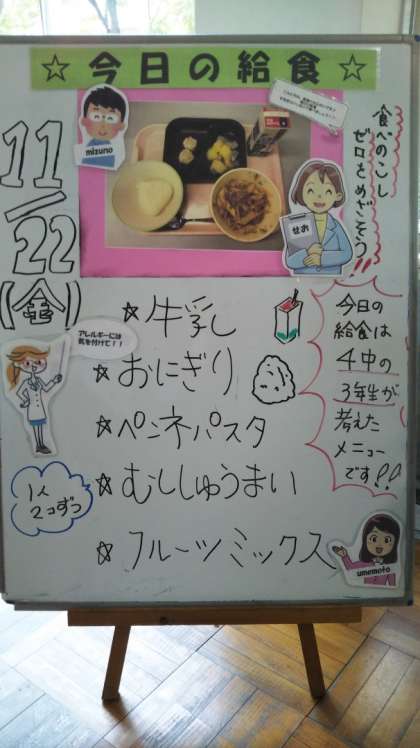 ☆今日の給食☆
11/22
(金)
mizuno
せお
食べのこし
ゼロをめざそう!!
アレルギーには
気を付けて!!
☆牛乳
☆おにぎり
☆ペンネパスタ
☆むししゅうまい
☆フルーツミックス
1人
2コずつ
今日の
給食は
4中の
3年生が
考えた
メニュー
です!!
umemoto